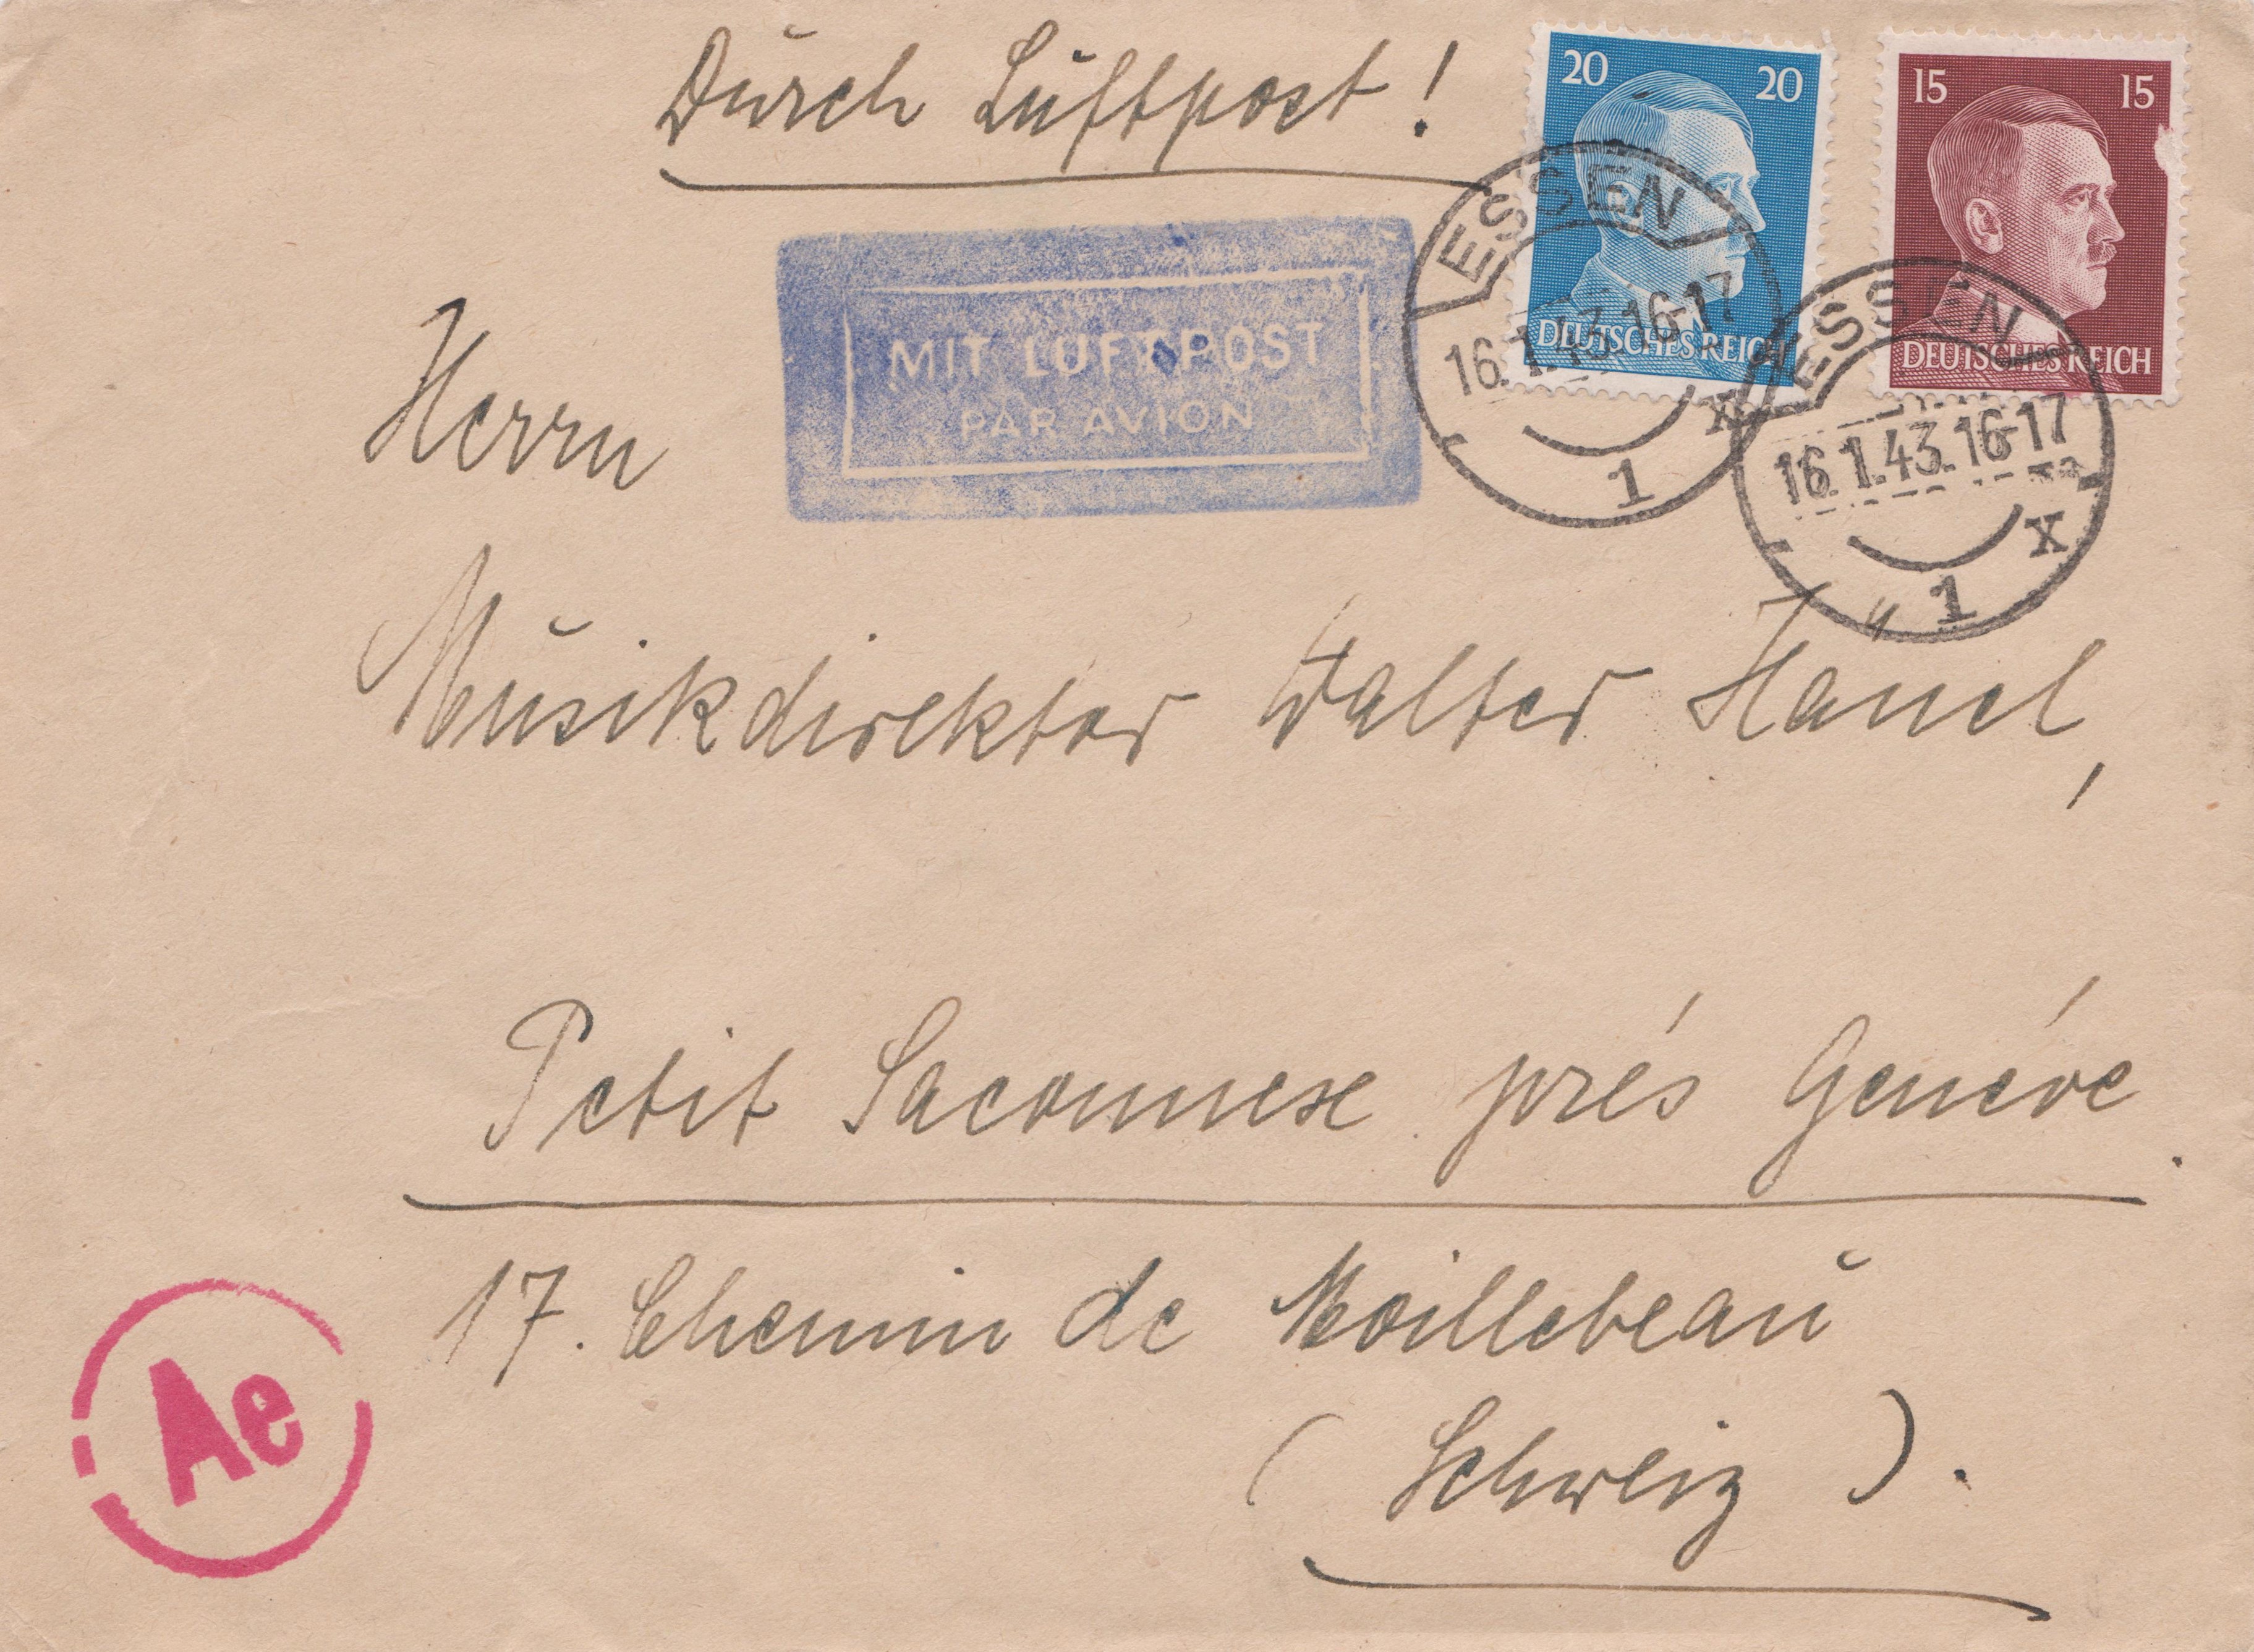 Durch Luftpost!
20 20
DEUTSCHES REICH
15 15
DEUTSCHES REICH
ESSEN
16.1.43.16-17
x
1
ESSEN
16.1.43.16-17
x
1
MIT LUFTPOST
PAR AVION
Herrn
Musikdirektor Walter Hänel,
Petit Saconnese prés Genéve.
17. Chemin de Moillebeau
(Schweiz).
Ae